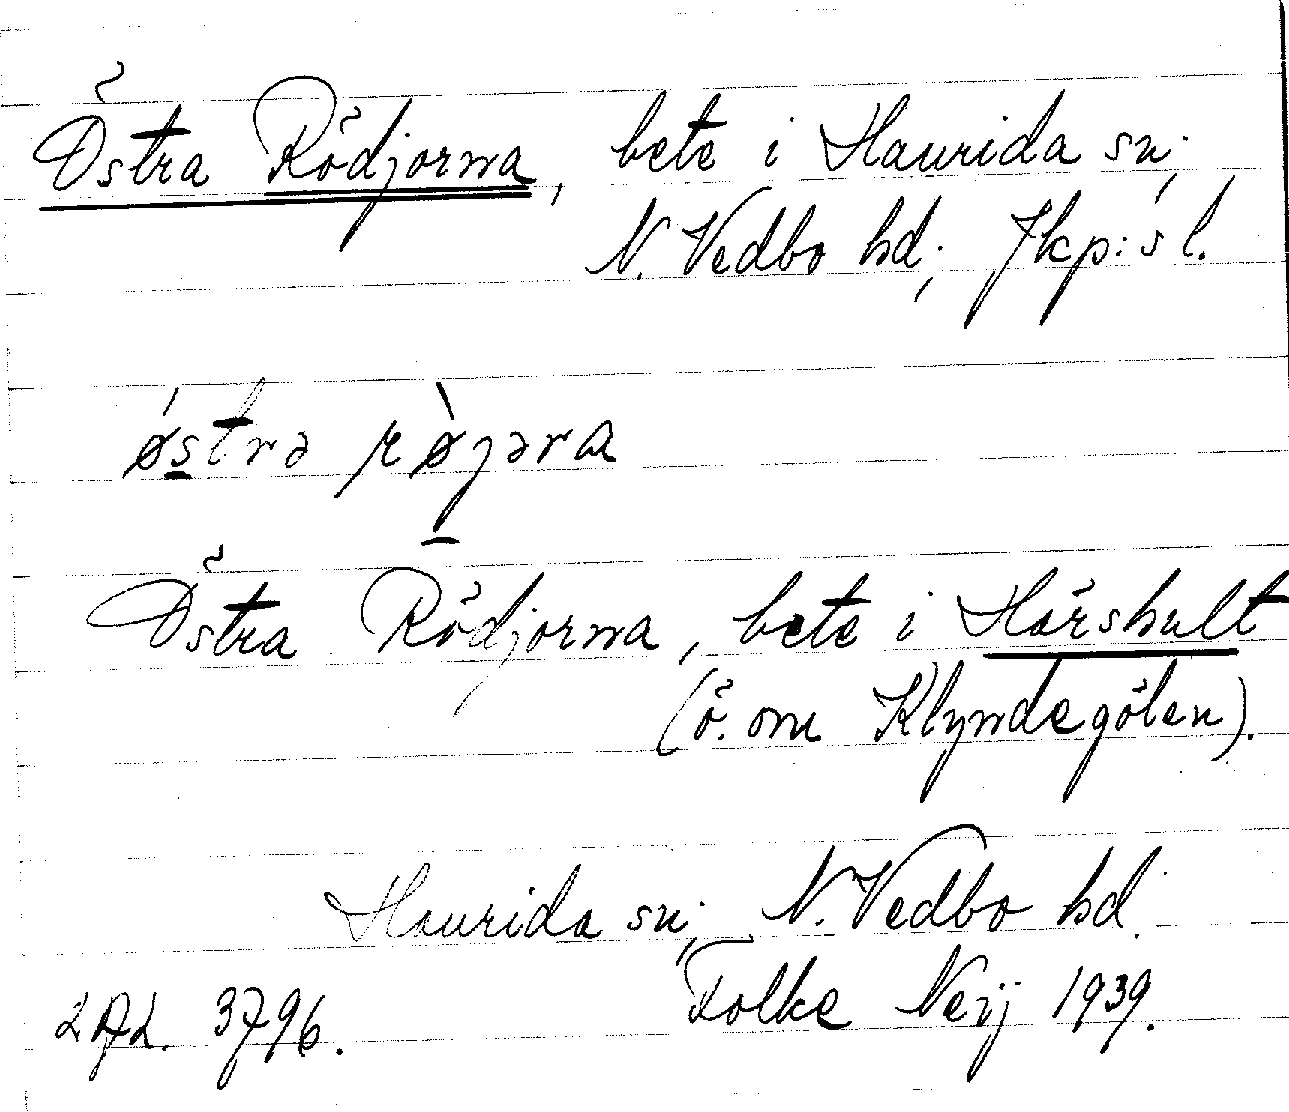 Östra Rödjorna, bete i Haurida sn;
N. Vedbo hd; Jkp:s l.
ǿstrə rø̀jəra
Östra Rödjorna, bete i Hörshult
(ö. om Klyndegölen).
Haurida sn; N. Vedbo hd.
Folke Neij 1939.
3796.